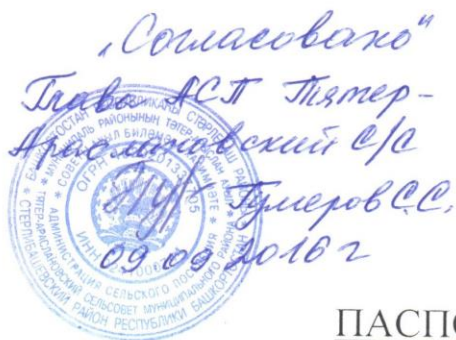 „Согласовано“
Глава АСП Тятер-
Араслановский с/с
Гумеров С.С.
09 09 2016 г
АДМИНИСТРАЦИЯ СЕЛЬСКОГО ПОСЕЛЕНИЯ
ТЯТЕР-АРАСЛАНОВСКИЙ СЕЛЬСОВЕТ МУНИЦИПАЛЬНОГО РАЙОНА
СТЕРЛИБАШЕВСКИЙ РАЙОН РЕСПУБЛИКИ БАШКОРТОСТАН
ОГРН
ИНН
ПАСПО